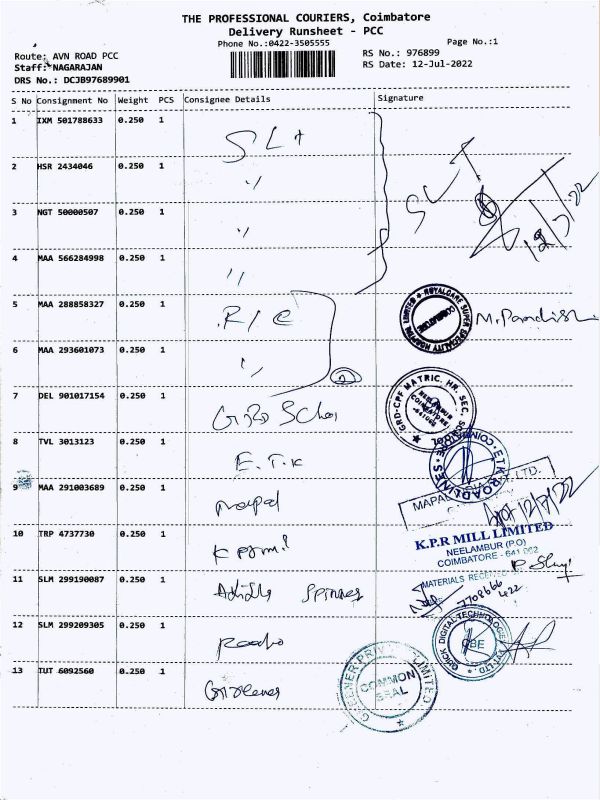 THE PROFESSIONAL COURIERS, Coimbatore
Delivery Runsheet - PCC
Phone No.:0422-3505555
Page No.:1
Route: AVN ROAD PCC
RS No.: 976899
Staff: NAGARAJAN
RS Date: 12-Jul-2022
DRS No.: DCJB97689901
S No Consignment No Weight PCS Consignee Details Signature
1 IXM 501788633 0.250 1
2 HSR 2434046 0.250 1 "
3 NGT 50000507 0.250 1 "
4 MAA 566284998 0.250 1 "
SLT
12/7/22
5 MAA 288858327 0.250 1 R/C
ROYALCARE SUPER SPECIALITY HOSPITAL LIMITED
COIMBATORE
6 MAA 293601073 0.250 1 "
2
7 DEL 901017154 0.250 1
GRD-CPF MATRIC. HR. SEC. SCHOOL
NEELAMBUR
COIMBATORE
-641062
8 TVL 3013123 0.250 1 E.T.K
E.T.K ROADLINES
9 MAA 291003689 0.250 1 mapal
MAPAL
LTD.
12/7/22
10 TRP 4737730 0.250 1 KPR mill
K.P.R MILL LIMITED
NEELAMBUR (P.O)
COIMBATORE - 641 062
11 SLM 299190087 0.250 1
MATERIALS RECEIVED
12 SLM 299209305 0.250 1
QUICK DIGITAL TECHNOLOGIES PVT LTD
CBE
13 TUT 6092560 0.250 1
PRIVATE LIMITED
COMMON
SEAL